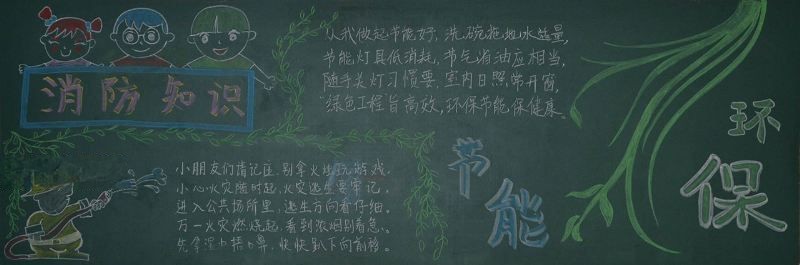 消防知识
小朋友们请记住,别拿火烛玩游戏.
小心火灾随时起,火灾逃生要牢记.
进入公共场所里,逃生方向看仔细.
万一火灾燃烧起,看到浓烟别着急.
先拿湿巾捂口鼻,快快趴下向前移.
从我做起节能好,洗碗拖地水适量,
节能灯具低消耗,节气省油应相当,
随手关灯习惯要,室内日照常开窗,
绿色工程旨高效,环保节能保健康。
节能
环保